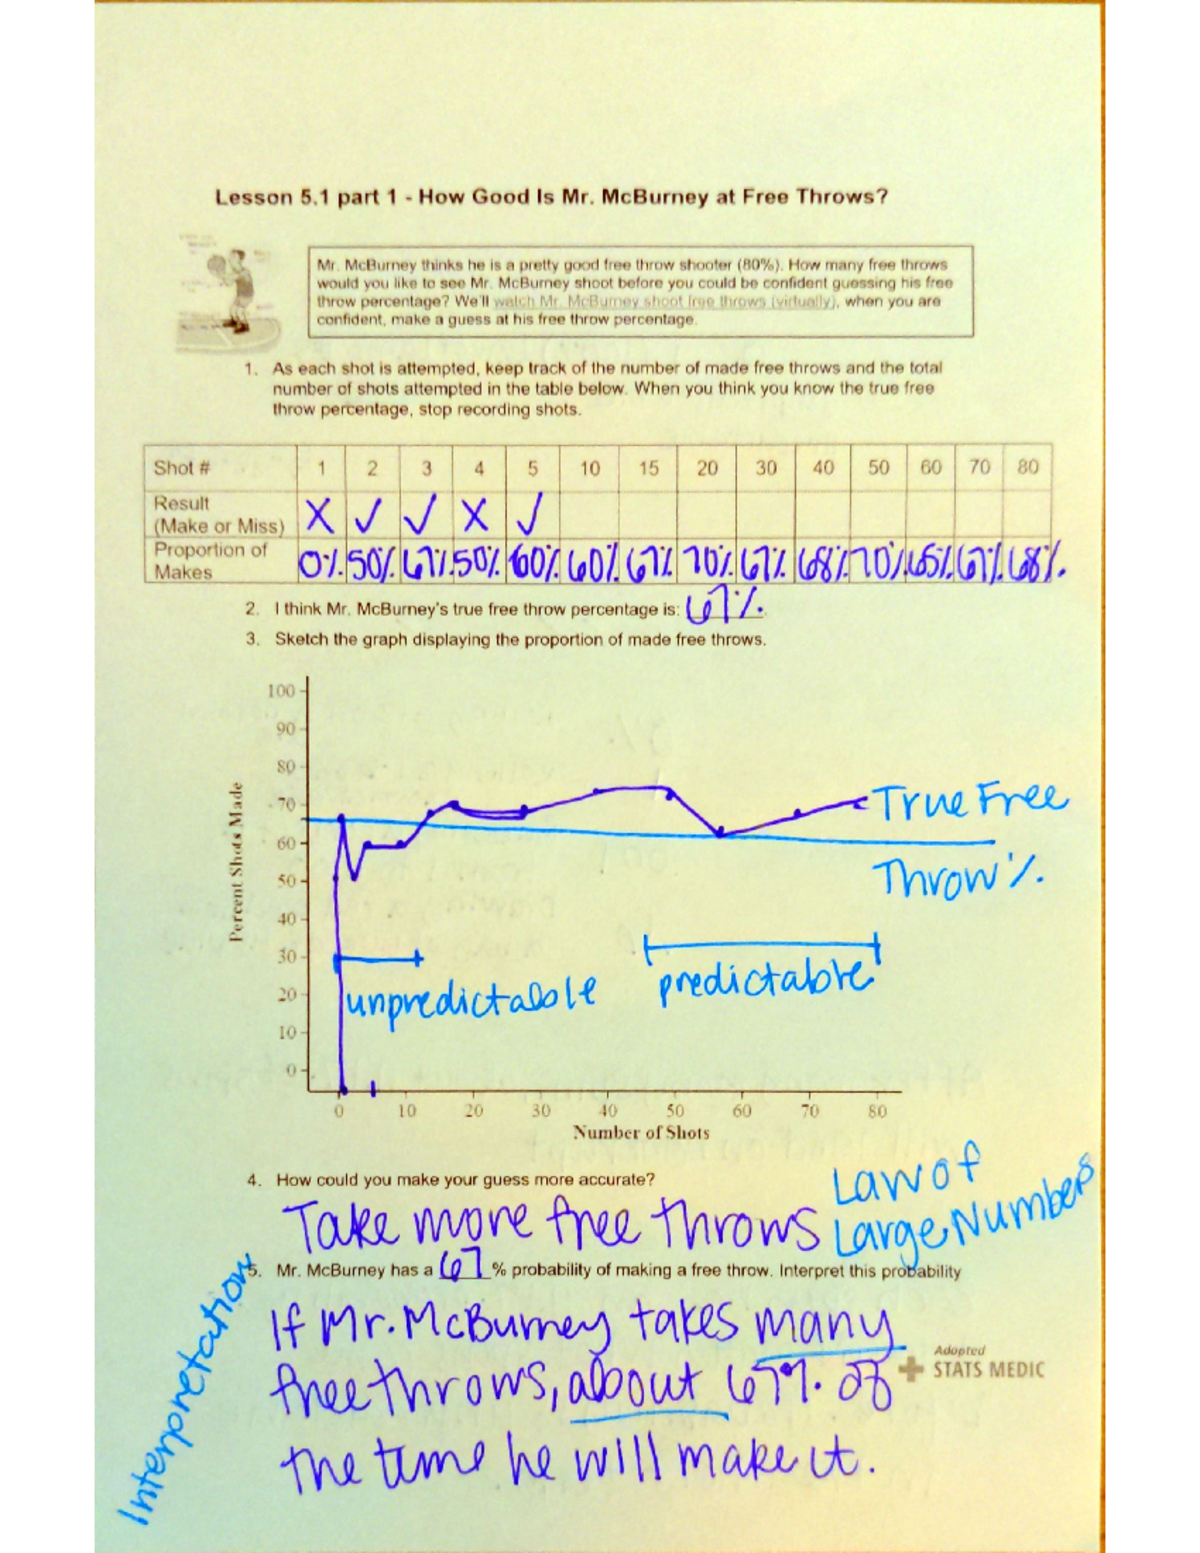 Lesson 5.1 part 1 - How Good Is Mr. McBurney at Free Throws?
Mr. McBurney thinks he is a pretty good free throw shooter (80%). How many free throws
would you like to see Mr. McBurney shoot before you could be confident guessing his free
throw percentage? We'll watch Mr. McBurney shoot free throws (virtually), when you are
confident, make a guess at his free throw percentage.
1. As each shot is attempted, keep track of the number of made free throws and the total
number of shots attempted in the table below. When you think you know the true free
throw percentage, stop recording shots.
Shot # 1 2 3 4 5 10 15 20 30 40 50 60 70 80
Result
(Make or Miss) X ✓ ✓ X ✓
Proportion of
Makes 0% 50% 67% 50% 60% 60% 67% 70% 67% 68% 70% 65% 67% 68%
2. I think Mr. McBurney's true free throw percentage is: 67%.
3. Sketch the graph displaying the proportion of made free throws.
100
90
80
70
60
50
40
30
20
10
0
Percent Shots Made
True Free
Throw %
unpredictable
predictable
0 10 20 30 40 50 60 70 80
Number of Shots
4. How could you make your guess more accurate?
Take more free throws
Law of
Large Numbers
5. Mr. McBurney has a 67 % probability of making a free throw. Interpret this probability
Interpretation
If Mr. McBurney takes many
free throws, about 67% of
the time he will make it.
Adopted
STATS MEDIC